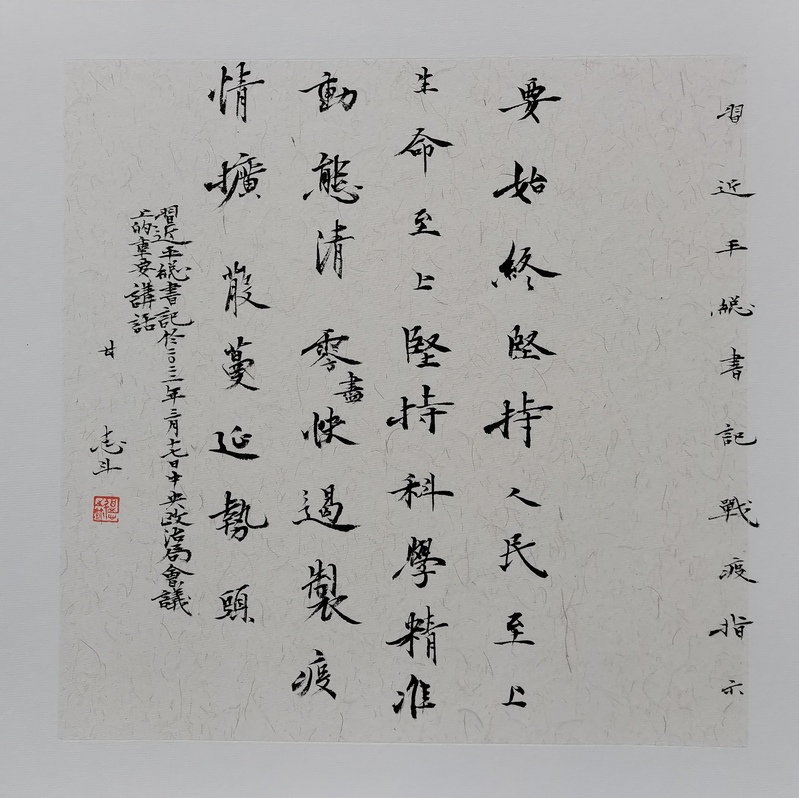 習近平総書記戰疫指示
要始終堅持人民至上
生命至上堅持科學精准
動態清零盡快遏製疫
情擴散蔓延勢頭
習近平総書記於二〇二二年三月十七日中央政治局會議
上的重要講話
甘
志斗